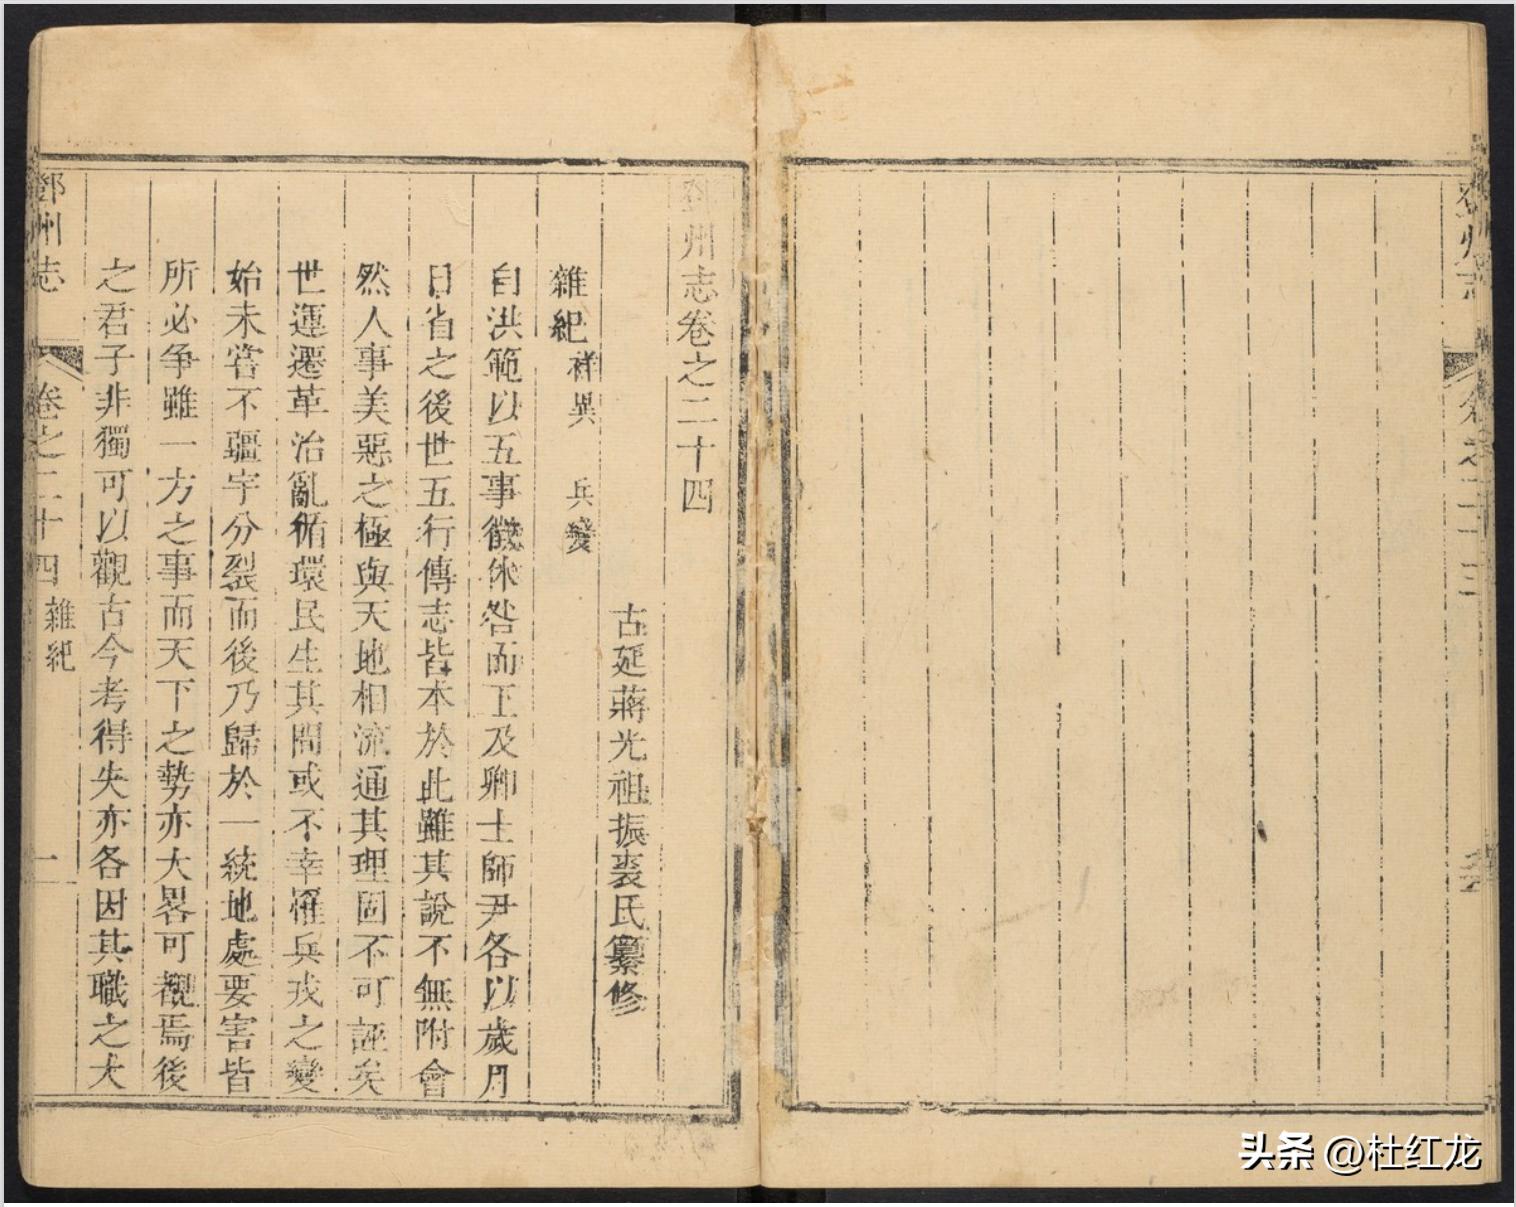 鄧州志
卷之二十三
鄧州志卷之二十四
古延蔣光祖振裘氏纂修
雜紀 祥異 兵變
自洪範以五事徵休咎而王及卿士師尹各以歲月
日省之後世五行傳志皆本於此雖其說不無附會
然人事美惡之極與天地相流通其理固不可誣矣
世運遷革治亂循環民生其間或不幸罹兵戎之變
始未嘗不疆宇分裂而後乃歸於一統地處要害皆
所必争雖一方之事而天下之勢亦大畧可覩焉後
之君子非獨可以觀古今考得失亦各因其職之大
鄧州志 卷之二十四 雜紀 一
头条 @杜红龙